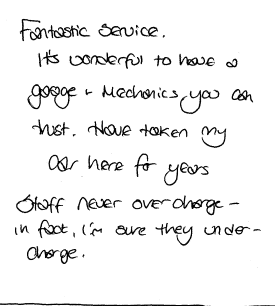 Fantastic Service.
It's wonderful to have a
garage + Mechanics, you can
trust. Have taken my
car here for years
Staff never overcharge -
in fact, I'm sure they under-
charge.